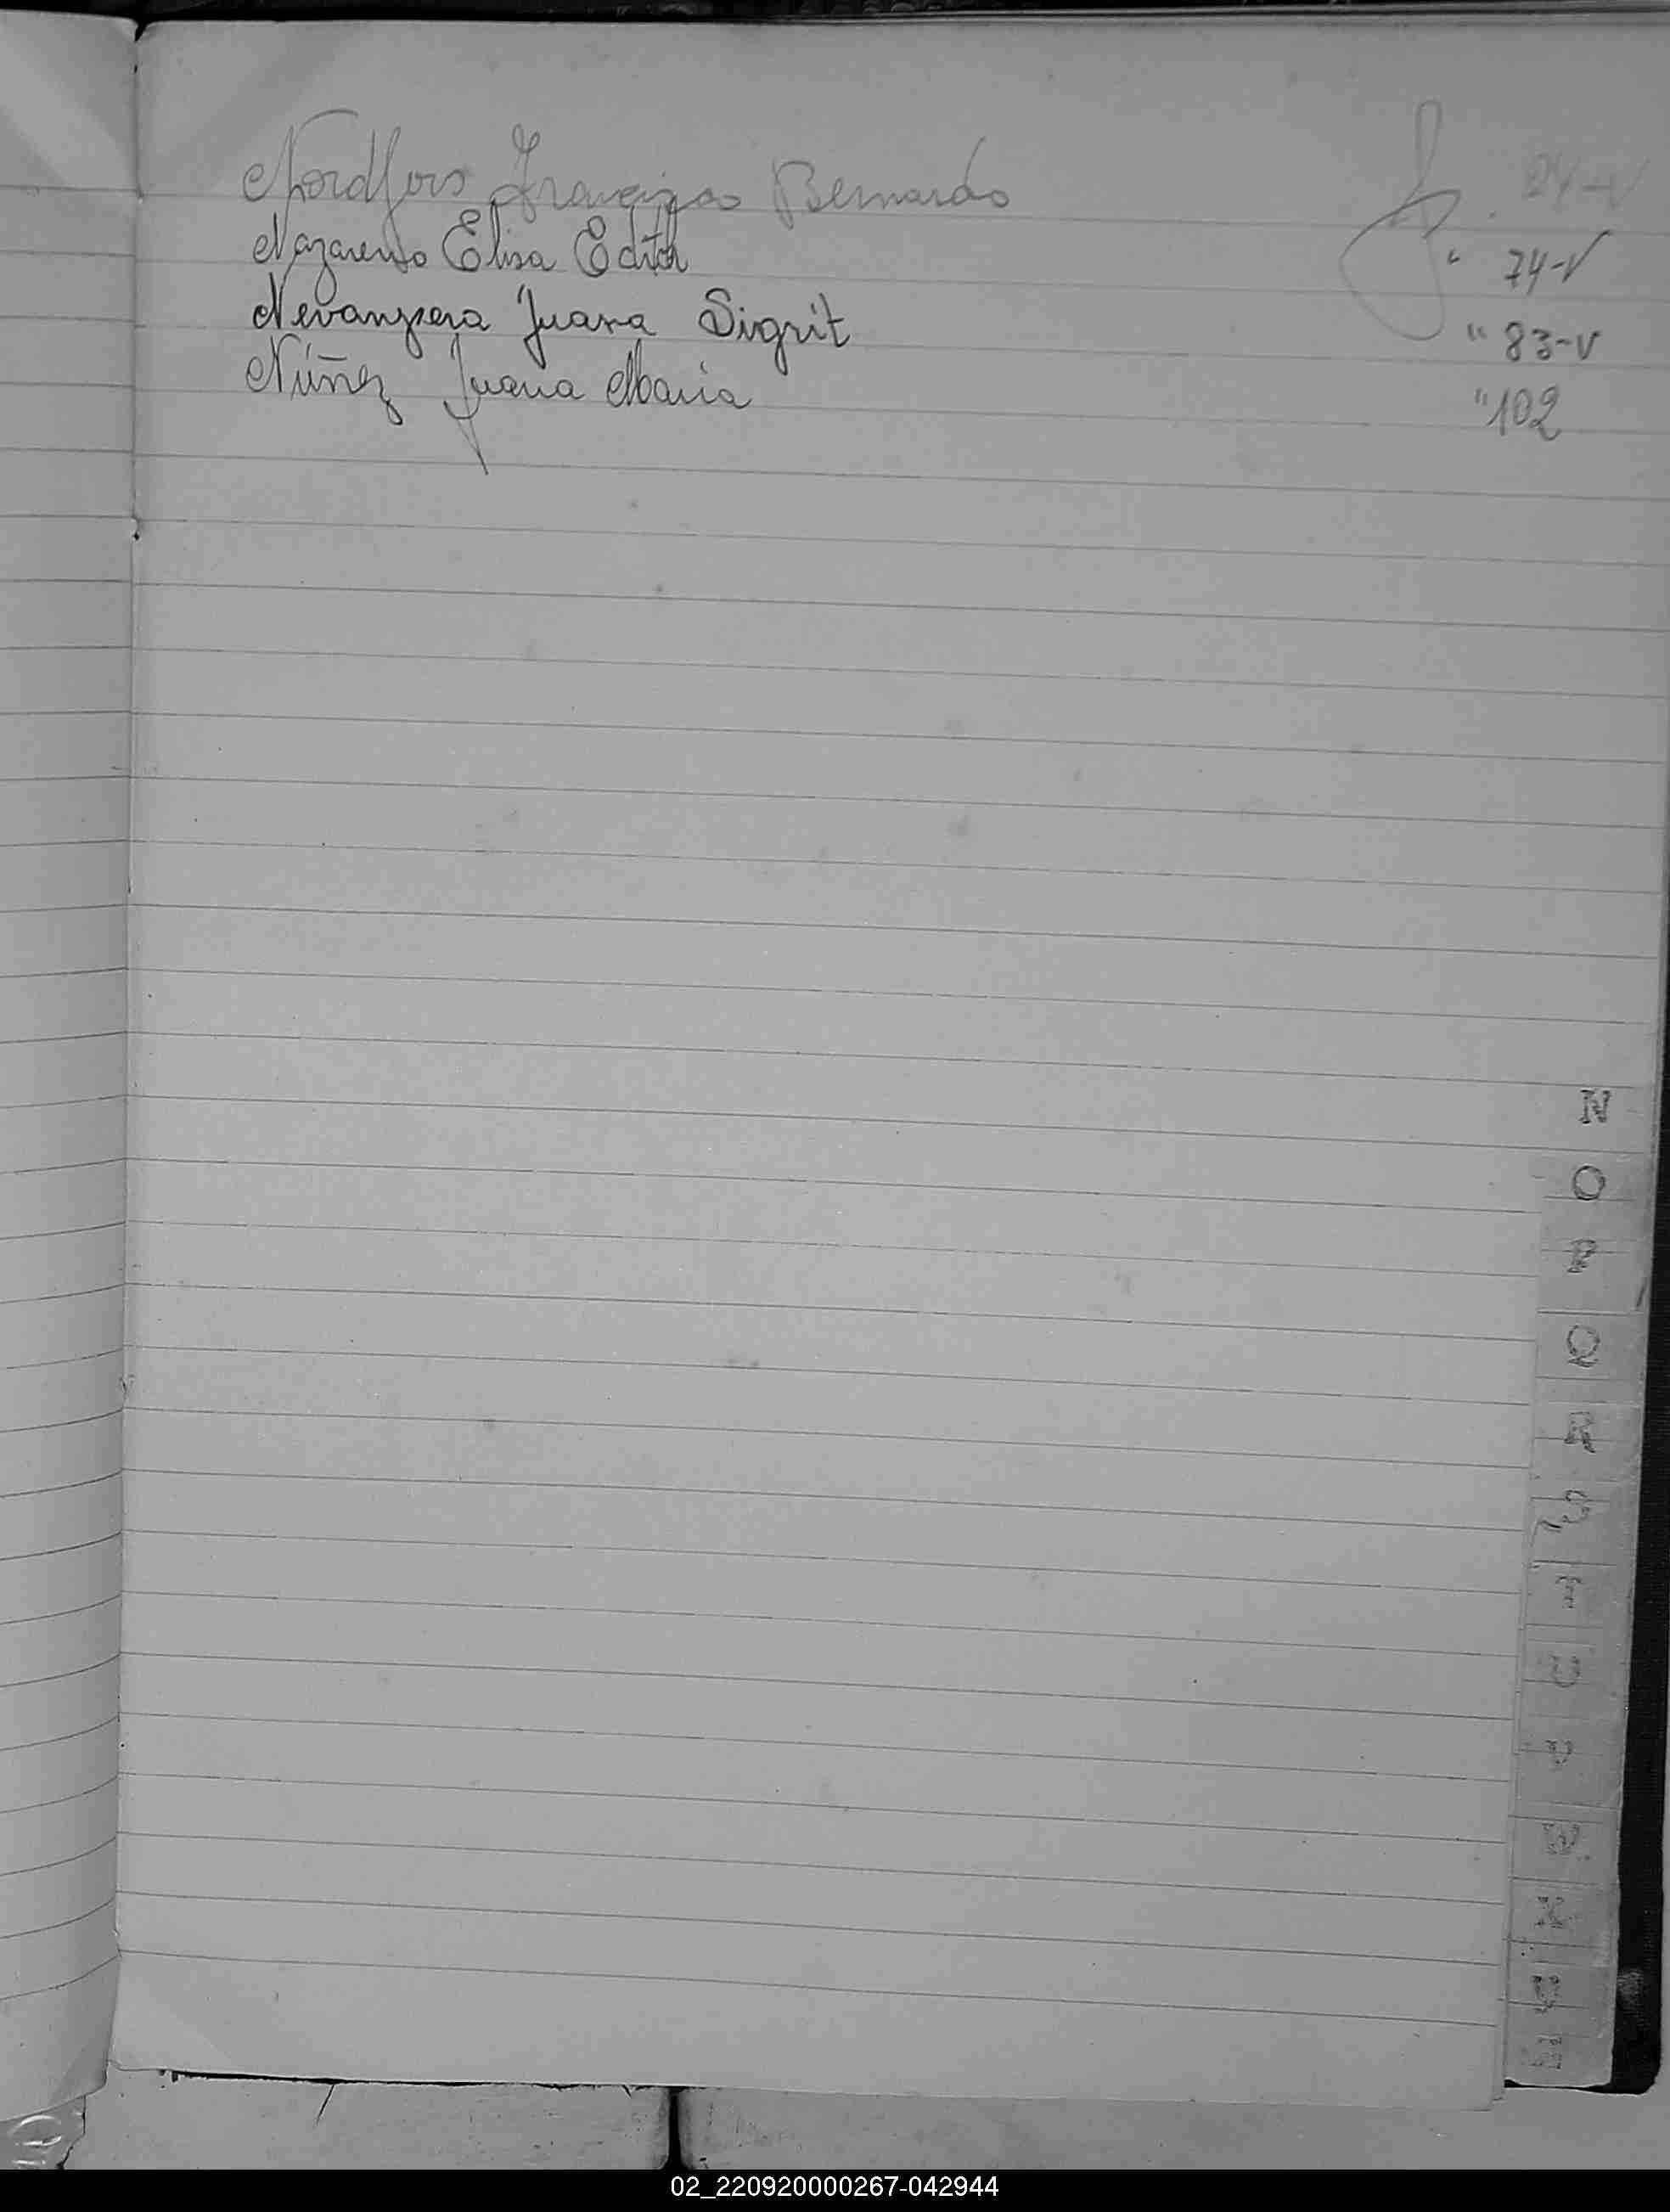 Nordfors Francisco Bernardo f. 24-V
Nazareno Elisa Edith " 74-V
Nevanpera Juana Sigrit " 83-V
Núñez Juana Maria " 102
N
O
P
Q
R
S
T
02_220920000267-042944